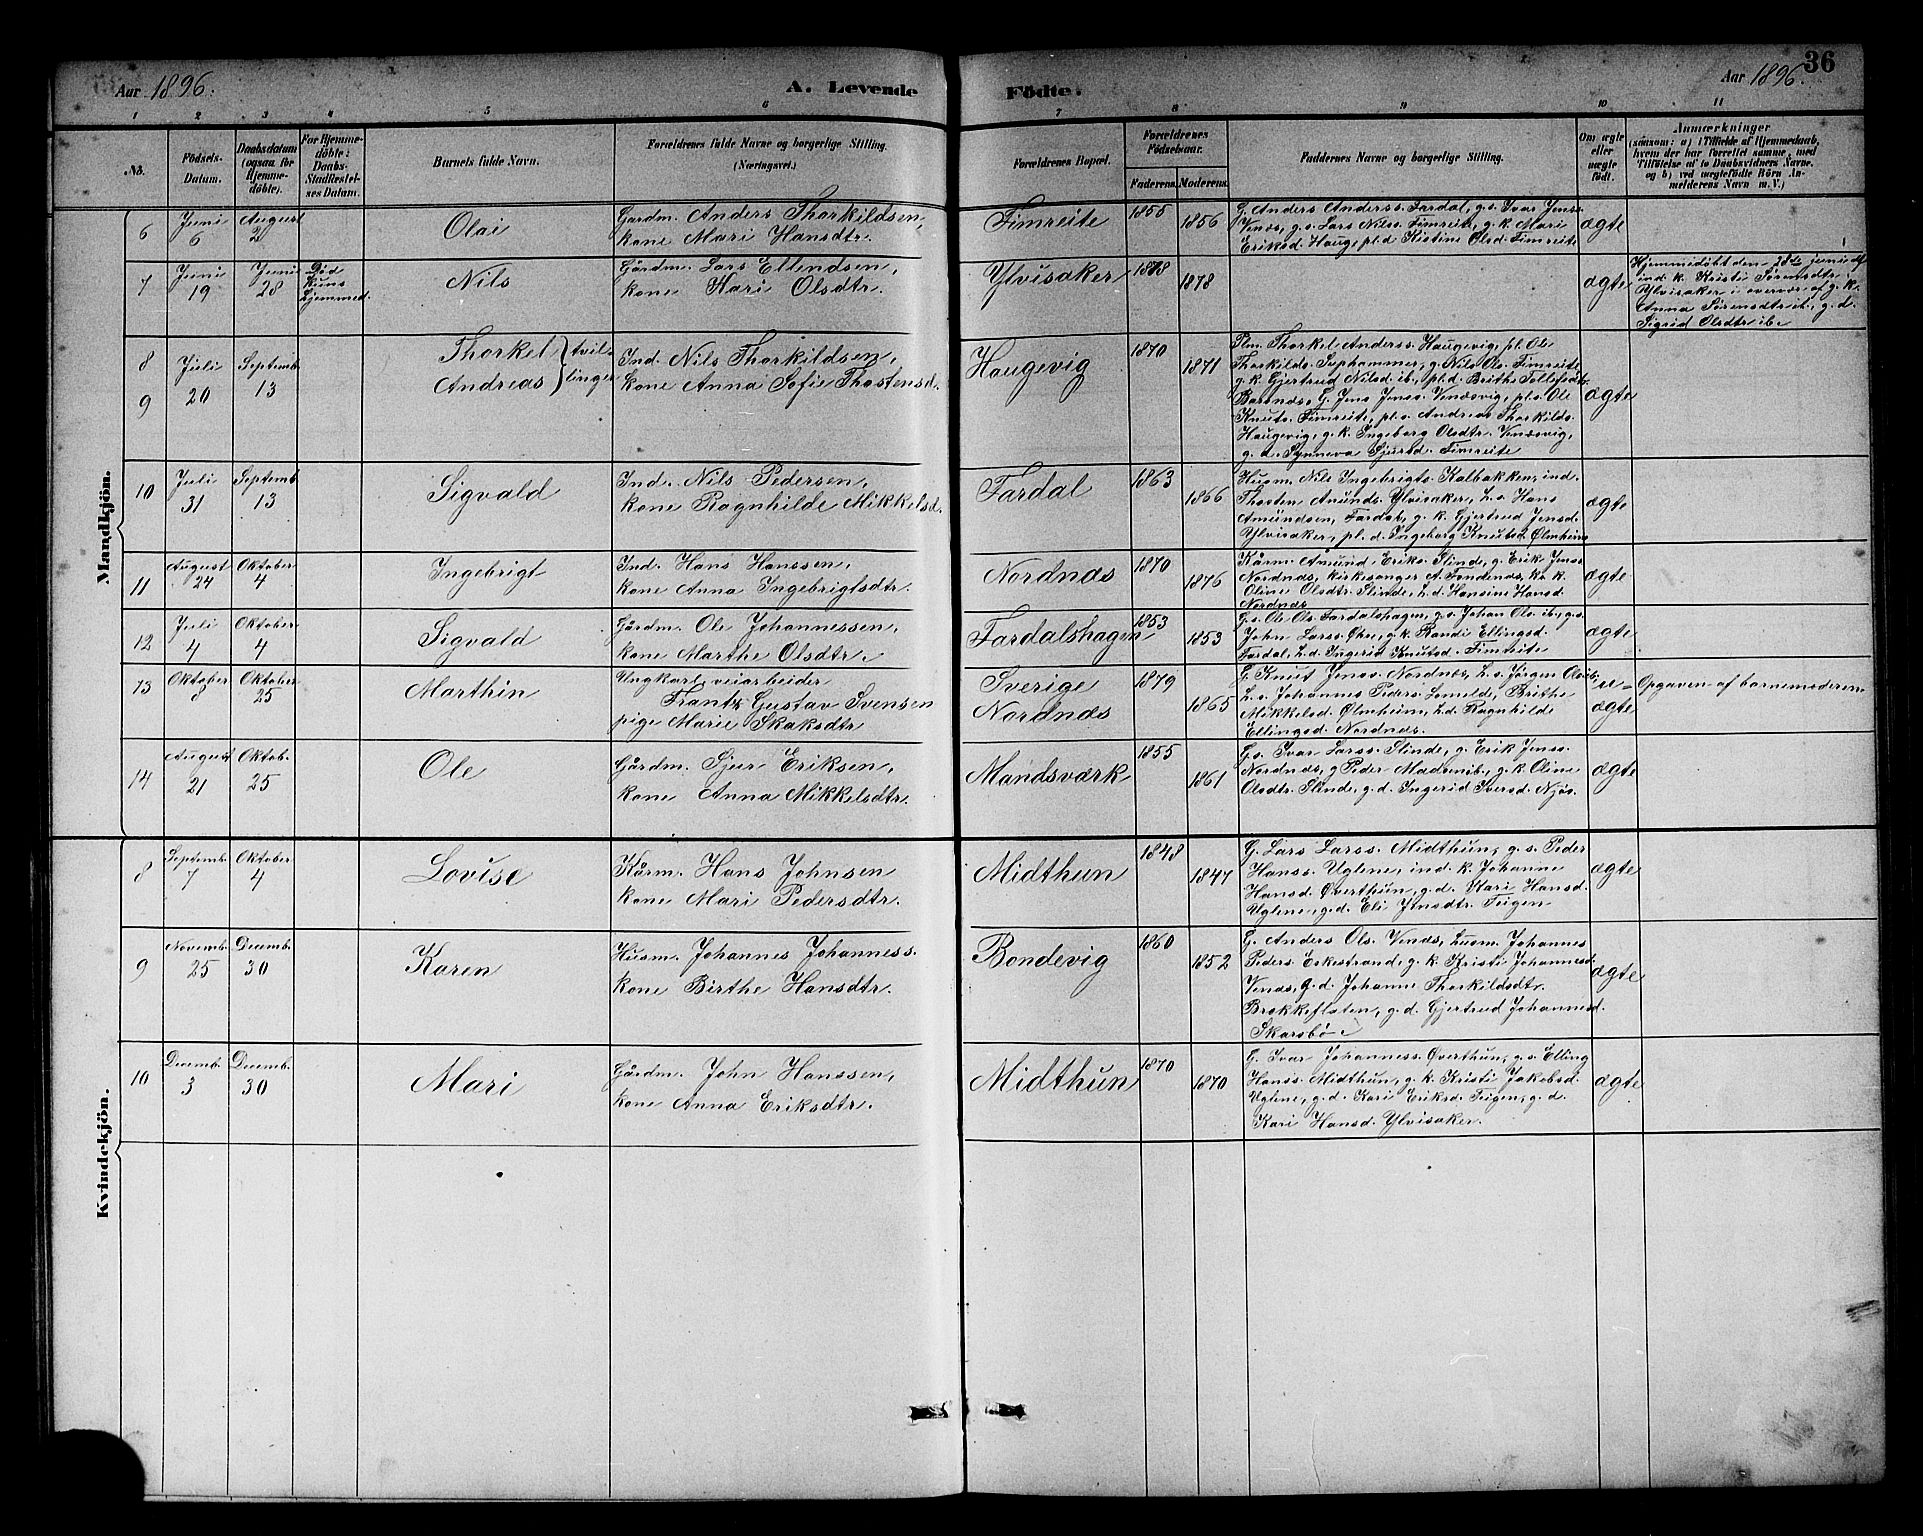 Aar 1896.
A. Levende Födte.
Aar 1896.
36
1 2 3 4 5 6 7 8 9 10 11
No.
Födsels-
Datum.
Daabsdatum
(ogsaa for
Hjemme-
döbte).
For Hjemme-
döbte:
Daabs-
Stadfæstel-
ses Datum.
Barnets fulde Navn.
Forældrenes fulde Navne og borgerlige Stilling.
(Næringsvei.)
Forældrenes Bopæl.
Forældrenes
Födselsaar.
Faderens. Moderens.
Faddernes Navne og borgerlige Stilling.
Om ægte
eller
uægte
født.
Anmærkninger
(saasom: a) i Tilfælde af Hjemmedaab,
hvem der har forrettet samme, med
Tilföielse af to Daabsvidners Navne,
og b) ved uægtefödte Börn An-
melderens Navn m. V.)
Mandkjön.
6
Juni
6
August
2
Olai
Gårdm. Anders Thorkildsen,
kone Mari Hansdtr.
Fimreite
1855
1856
G. Anders Anderss. Fardal, g.s. Ivar Jenss.
Venæs, g.s. Lars Nilss. Fimreite, g.k. Mari
Eriksd. Hauge, pl.d. Kistine Olsd. Fimreite
ægte
7
Juni
19
Juni
28
Död
kuns
hjemmed.
Nils
Gårdm. Lars Ellendsen,
kone Kari Olsdtr.
Ylvisaker
1878
1878
ægte
Hjemmedöbt den 28de juni af
ind. k. Kristi Sørensdtr
Ylvisaker i overvær af g.k.
Anna Sørensdtr ib., g.d.
Sigrid Olsdtr ib.
8
9
Juli
20
Septemb.
13
Thorkel
Andreas
tvil-
linger
Ind. Nils Thorkildsen,
kone Anna Sofie Thostensd.
Haugevig
1870
1871
Plm. Thorkel Anderss. Haugevig, pl. Ole
Thorkilds. Suphammer, g. Nils Ols. Fimreite
g.k. Gjertrud Nilsd. ib., pl.d. Brithe Tollefsdtr.
Barsnæs, G. Jens Jenss. Venæsvig, pl.s. Ole
Knuts. Fimreite, pl.s. Andreas Thorkilds.
Haugevig, g.k. Ingeborg Olsdtr. Venæsvig,
g.d. Synneva Sjursd. Fimreite
ægte
10
Juli
31
Septemb.
13
Sigvald
Ind. Nils Pedersen,
kone Ragnhilde Mikkelsd.
Fardal
1863
1866
Husm. Nils Ingebrigts. Kalbakken, ind.
Thosten Amunds. Ylvisaker, h.s. Hans
Amundsen, Fardal, g.k. Gjertrud Jensd.
Ylvisaker, pl.d. Ingeborg Knutsd. Ølmheim
ægte
11
August
24
Oktober
4
Ingebrigt
Ind. Hans Hanssen,
kone Anna Ingebrigtsdtr.
Nordnæs
1870
1876
Kårm. Amund Eriks. Slinde, g. Erik Jenss.
Nordnæs, kirkesanger A. Fondenæs, kå. k.
Oline Olsdtr. Slinde, h.d. Hansine Hansd.
Nordnæs
ægte
12
Juli
4
Oktober
4
Sigvald
Gårdm. Ole Johannessen,
kone Marthe Olsdtr.
Fardalshagen
1853
1853
G.s. Ole Ols. Fardalshagen, g.s. Johan Ols. ib., g.s.
John Larss. Øhn, g.k. Randi Ellingsd.
Fardal, h.d. Ingerid Knutsd. Fimreite
ægte
13
Oktober
8
Oktober
25
Marthin
Ungkarl, veiarbeider
Frants Gustav Svensen
pige Marie Skaksdtr
Sverige
Nordnæs
1879
1865
G. Knut Jenss. Nordnæs, h.s. Jørgen Ols. ib.
h.s. Johannes Peders. Lomelde, Brithe
Mikkelsd. Ølmheim, h.d. Ragnhilde
Ellingsd. Nordnæs.
u-
ægte
Opgaven af barnemoderen
14
August
21
Oktob.
25
Ole
Gårdm. Sjur Eriksen,
kone Anna Mikkelsdtr.
Mandsværk
1855
1861
G.s. Ivar Larss. Slinde, g. Erik Jenss.
Nordnæs, g. Peder Madsen ib., g.k. Oline
Olsdtr. Slinde, g.d. Ingerid Iversd. Njøs.
ægte
Kvindekjön.
8
Septemb.
7
Oktober
4
Lovise
Kårm. Hans Johnsen
kone Mari Pedersdtr.
Midthun
1848
1847
G. Lars Larss. Midthun, g.s. Peder
Hanss. Uglene, ind. k. Johanne
Hansd. Øverthun, g.d. Kari Hansd.
Uglene, g.d. Eli Jensdtr. Teigen
ægte
9
Novemb.
25
Decemb.
30
Karen
Husm. Johannes Johanness.
kone Birthe Hansdtr.
Bondevig
1860
1852
G. Anders Ols. Venæs, husm. Johannes
Peders. Eskestrand, g.k. Kristi Johannesd.
Venæs, g.d. Johanne Thorkildsdtr.
Brekkeflaten, g.d. Gjertrud Johannesd.
Skarsbø.
ægte
10
Decemb.
3
Decemb.
30
Mari
Gårdm. John Hanssen,
kone Anna Eriksdtr.
Midthun
1870
1870
G. Ivar Johanness. Øverthun, g.s. Elling
Hanss. Midthun, g.k. Kristi Jakobsd.
Uglene, g.d. Kari Eriksd. Teigen, g.d.
Kari Hansd. Ylvisaker.
ægte